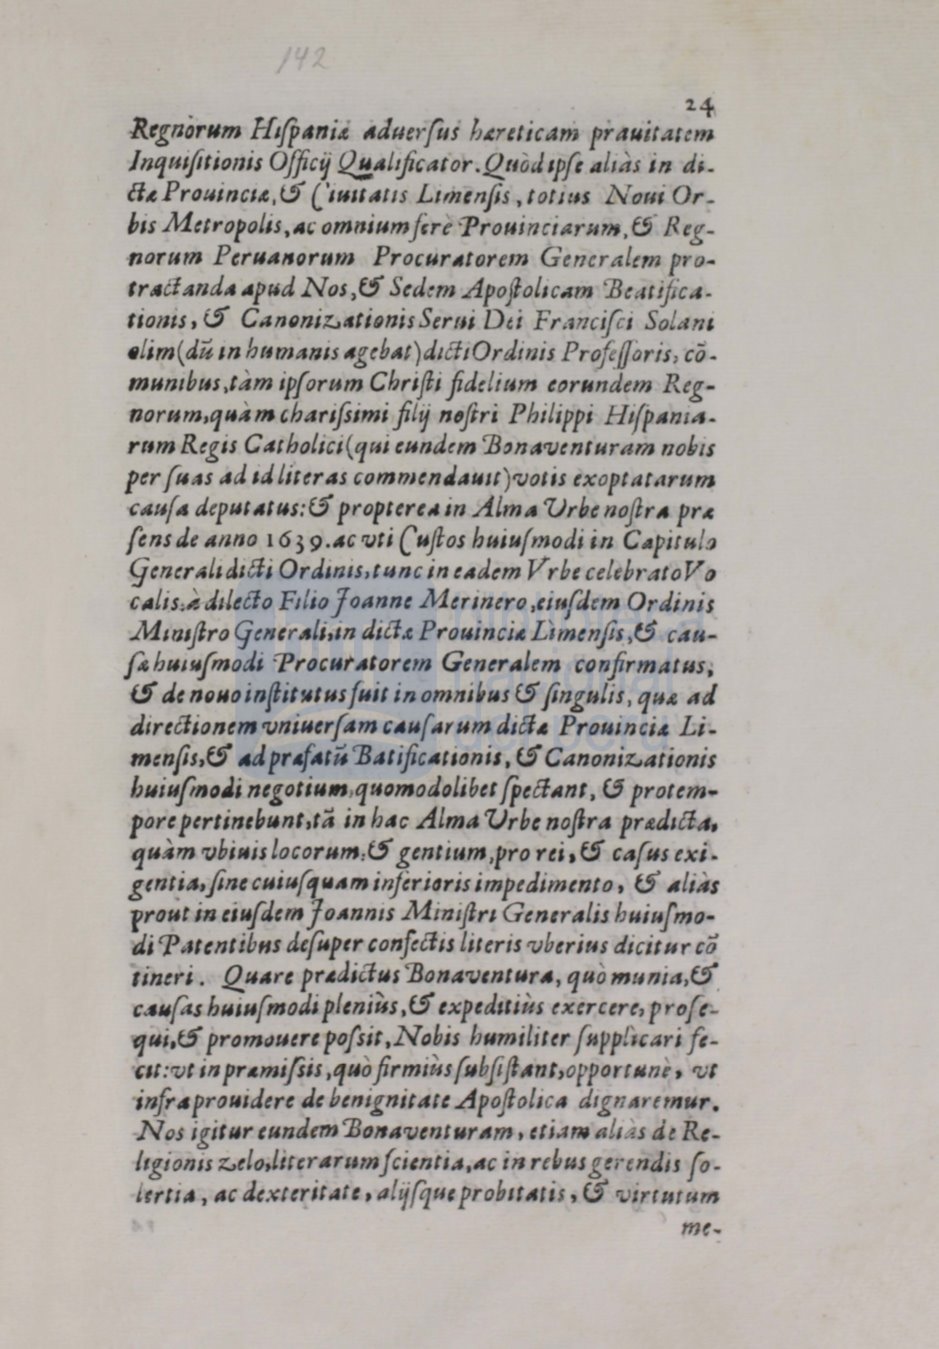 142
24
Regnòrum Hiſpaniæ aduerſus hæreticam prauitatem
Inquiſitionis Officij Qualificator. Quòd ipſe aliàs in di-
ctæ Prouinciæ, & Ciuitatis Limenſis, totius Noui Or-
bis Metropolis, ac omnium ferè Prouinciarum, & Reg-
norum Peruanorum Procuratorem Generalem pro-
tractanda apud Nos, & Sedem Apoſtolicam Beatifica-
tionis, & Canonizationis Serui Dei Franciſci Solani
olim (dū in humanis agebat) dicti Ordinis Profeſſoris, cō-
munibus, tàm ipſorum Chriſti fidelium eorundem Reg-
norum, quàm chariſsimi filij noſtri Philippi Hiſpania-
rum Regis Catholici (qui eundem Bonaventuram nobis
per ſuas ad id literas commendauit) votis exoptatarum
cauſa deputatus: & propterea in Alma Urbe noſtra præ
ſens de anno 1639. ac vti Cuſtos huiuſmodi in Capitulo
Generali dicti Ordinis, tunc in eadem Vrbe celebrato Vo
calis, à dilecto Filio Joanne Merinero, eiuſdem Ordinis
Miniſtro Generali, in dictæ Prouinciæ Limenſis, & cau-
ſæ huiuſmodi Procuratorem Generalem confirmatus,
& de nouo inſtitutus fuit in omnibus & ſingulis, quæ ad
directionem vniuerſam cauſarum dictæ Prouinciæ Li-
menſis, & ad præfatū Batificationis, & Canonizationis
huiuſmodi negotium, quomodolibet ſpectant, & protem-
pore pertinebunt, tā in hac Alma Urbe noſtra prædicta,
quàm vbiuis locorum, & gentium, pro rei, & caſus exi-
gentia, ſine cuiuſquam inferioris impedimento, & aliàs
prout in eiuſdem Joannis Miniſtri Generalis huiuſmo-
di Patentibns deſuper confectis literis vberius dicitur cō
tineri. Quare prædictus Bonaventura, quò munia, &
cauſas huiuſmodi pleniùs, & expeditiùs exercere, proſe-
qui, & promouere poſsit, Nobis humiliter ſupplicari fe-
cit: vt in præmiſsis, quò firmiùs ſubſiſtant, opportunè, vt
infra prouidere de benignitate Apoſtolica dignaremur.
Nos igitur eundem Bonaventuram, etiam aliàs de Re-
ligionis zelo, literarum ſcientia, ac in rebus gerendis ſo-
lertia, ac dexteritate, alijſque probitatis, & virtutum
me-